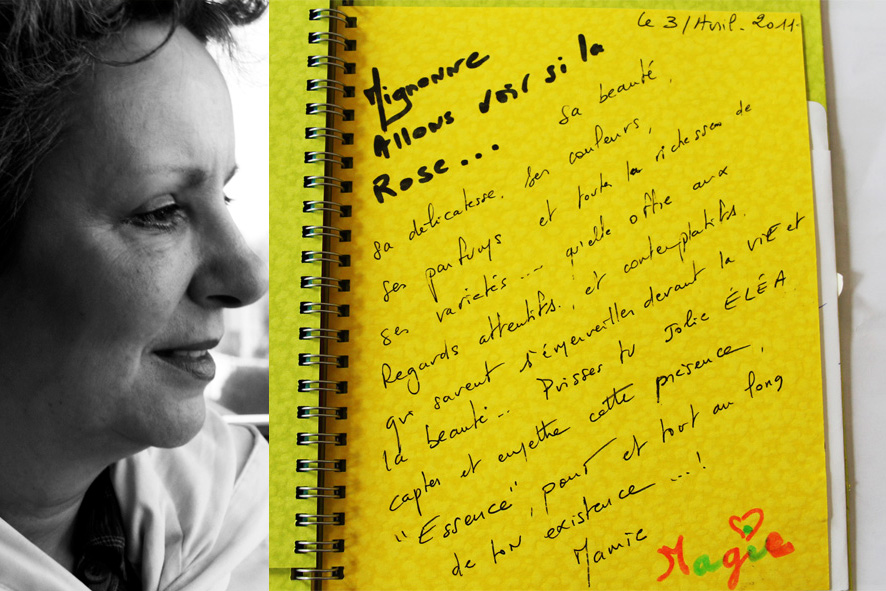 Le 3/Avril. 2011.
Mignonne
Allons voir si la
Rose... Sa beauté,
sa délicatesse. Ses couleurs,
ses parfums et toute la richesse de
ses variétés.... qu'elle offre aux
Regards attentifs, et contemplatifs.
qui savent s'émerveiller devant la viE et
la beauté... Puisses tu Jolie ÉLÉA
capter et cette présence,
"Essence", pour et tout au long
de ton existence...!
Mamie
Magie